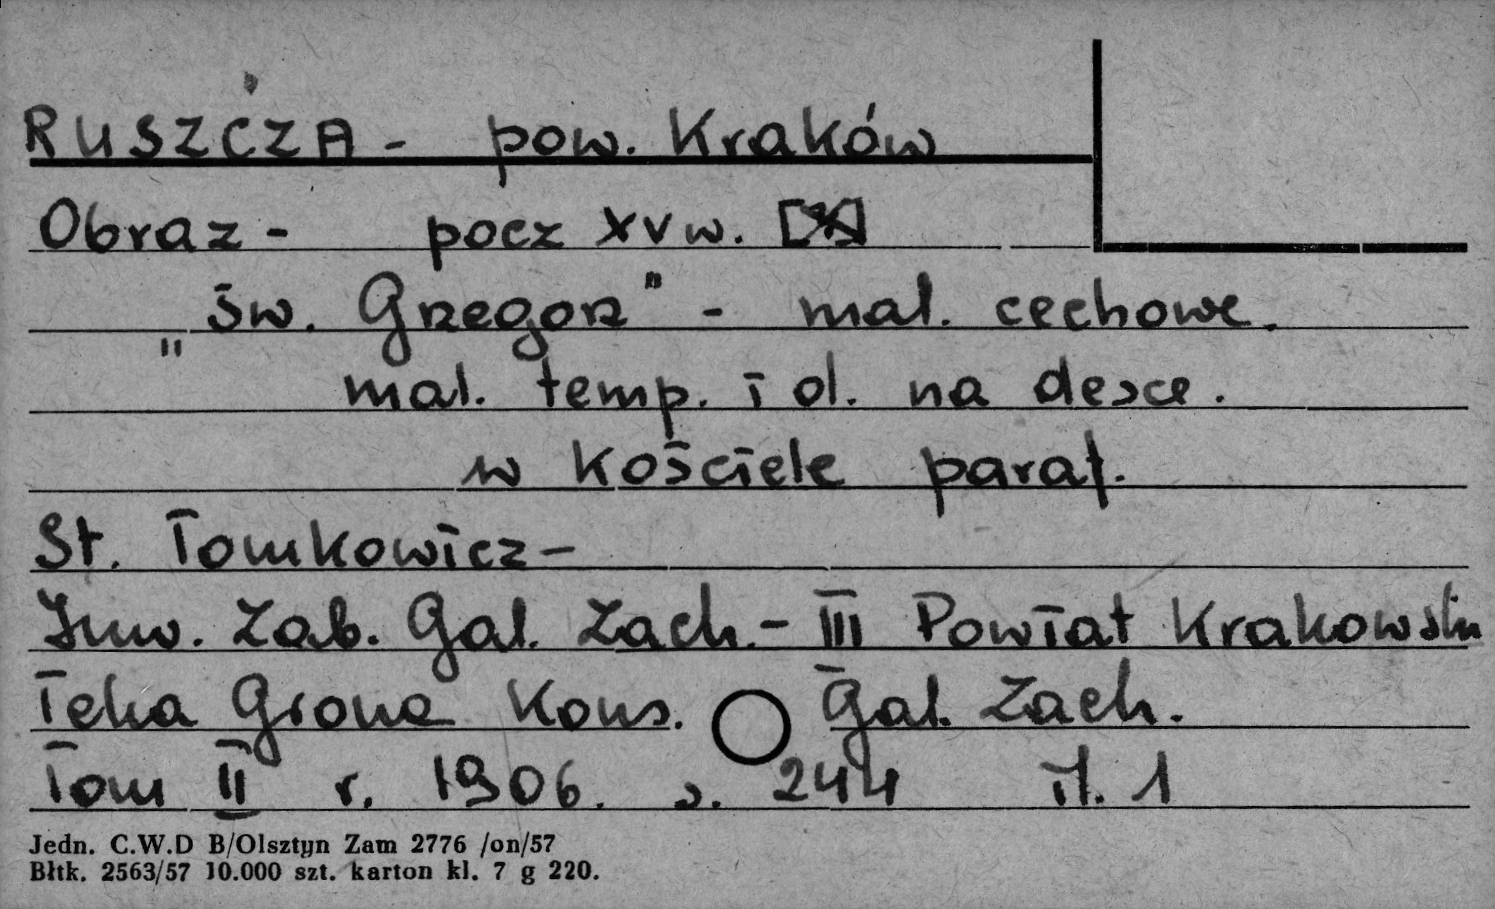 RUSZCZA - pow. Kraków
Obraz - pocz XV w.
"św. Grzegorz" - mal. cechowe.
mal. temp. i ol. na desce.
w kościele paraf.
St. Tomkowicz -
Inw. Zab. Gal. Zach. - III Powiat Krakowski
Teka Grona Kons. Gal. Zach.
Tom II r. 1906. s. 244 il. 1
Jedn. C.W.D B/Olsztyn Zam 2776 /on/57
Błtk. 2563/57 10.000 szt. karton kl. 7 g 220.